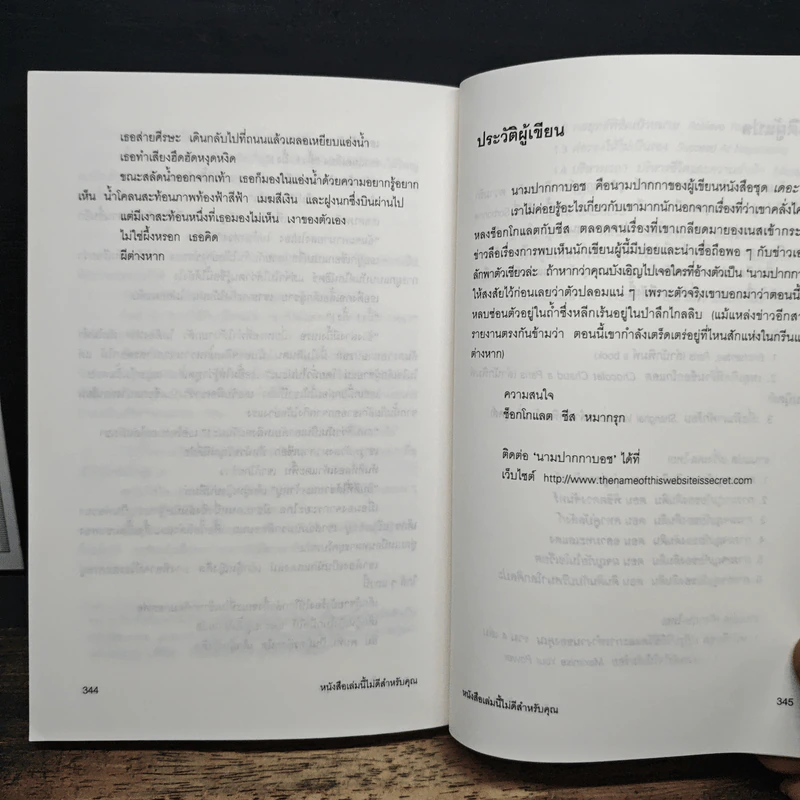 เธอส่ายศีรษะ เดินกลับไปที่ถนนแล้วเผลอเหยียบแอ่งน้ำ
เธอทำเสียงฮึดฮัดหงุดหงิด
ขณะสลัดน้ำออกจากเท้า เธอก็มองในแอ่งน้ำด้วยความอยากรู้อยาก
เห็น น้ำโคลนสะท้อนภาพท้องฟ้าสีฟ้า เมฆสีเงิน และฝูงนกซึ่งบินผ่านไป
แต่มีเงาสะท้อนหนึ่งที่เธอมองไม่เห็น เงาของตัวเอง
ไม่ใช่ผึ้งหรอก เธอคิด
ผีต่างหาก
344
หนังสือเล่มนี้ไม่ดีสำหรับคุณ
ประวัติผู้เขียน
นามปากกาบอช คือนามปากกาของผู้เขียนหนังสือชุด เดอะ
เราไม่ค่อยรู้อะไรเกี่ยวกับเขามากนักนอกจากเรื่องที่ว่าเขาคลั่งไค
หลงช็อกโกแลตกับชีส ตลอดจนเรื่องที่เขาเกลียดมายองเนสเข้ากระ
ข่าวลือเรื่องการพบเห็นนักเขียนผู้นี้มีบ่อยและน่าเชื่อถือพอ ๆ กับข่าวเอ
ลักพาตัวเชียวล่ะ ถ้าหากว่าคุณบังเอิญไปเจอใครที่อ้างตัวเป็น 'นามปากกา
ให้สงสัยไว้ก่อนเลยว่าตัวปลอมแน่ ๆ เพราะตัวจริงเขาบอกมาว่าตอนนี้
หลบซ่อนตัวอยู่ในถ้ำซึ่งหลีกเร้นอยู่ในป่าลึกไกลลิบ (แม้แหล่งข่าวอีกสา
รายงานตรงกันข้ามว่า ตอนนี้เขากำลังเตร็ดเตร่อยู่ที่ไหนสักแห่งในกรีนแ
ต่างหาก)
ความสนใจ
ช็อกโกแลต ชีส หมากรุก
ติดต่อ 'นามปากกาบอช' ได้ที่
เว็บไซต์ http://www.thenameofthiswebsiteissecret.com
หนังสือเล่มนี้ไม่ดีสำหรับคุณ
345